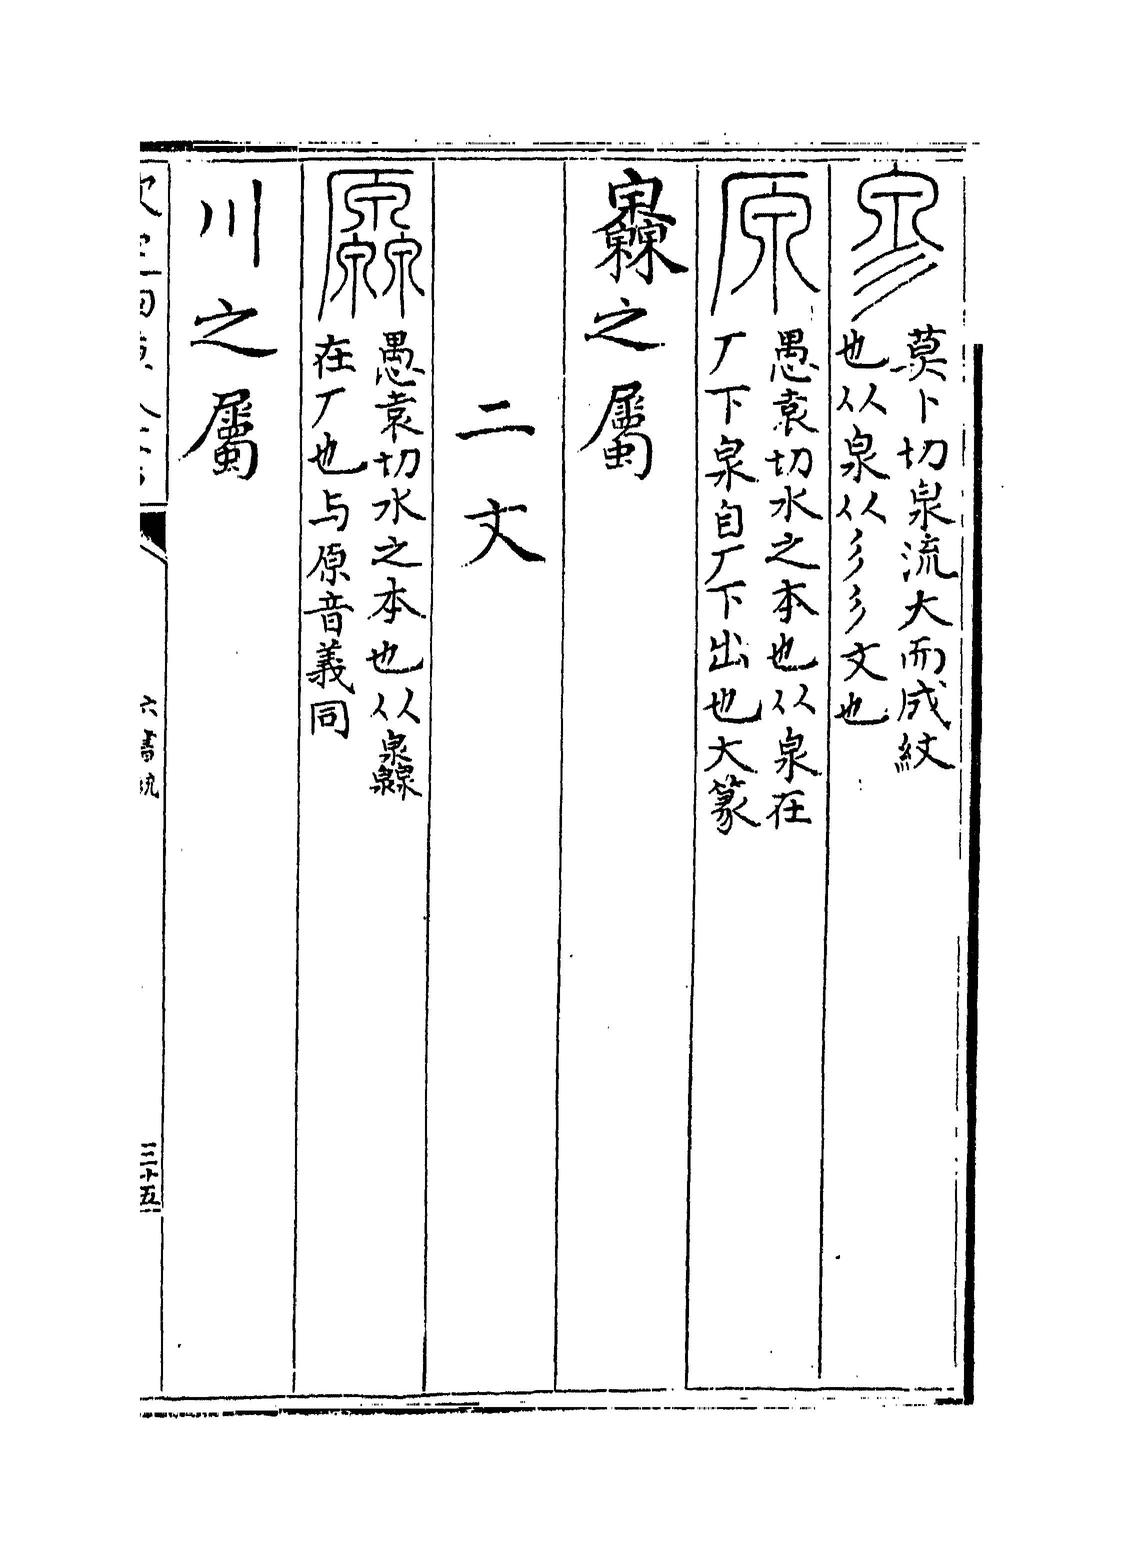 莫卜切泉流大而成紋
也从泉从彡彡文也
原
愚袁切水之本也从泉在
厂下泉自厂下出也大篆
灥之屬
二文
厵
愚袁切水之本也从灥
在厂也与原音義同
川之屬
六書統
三十五